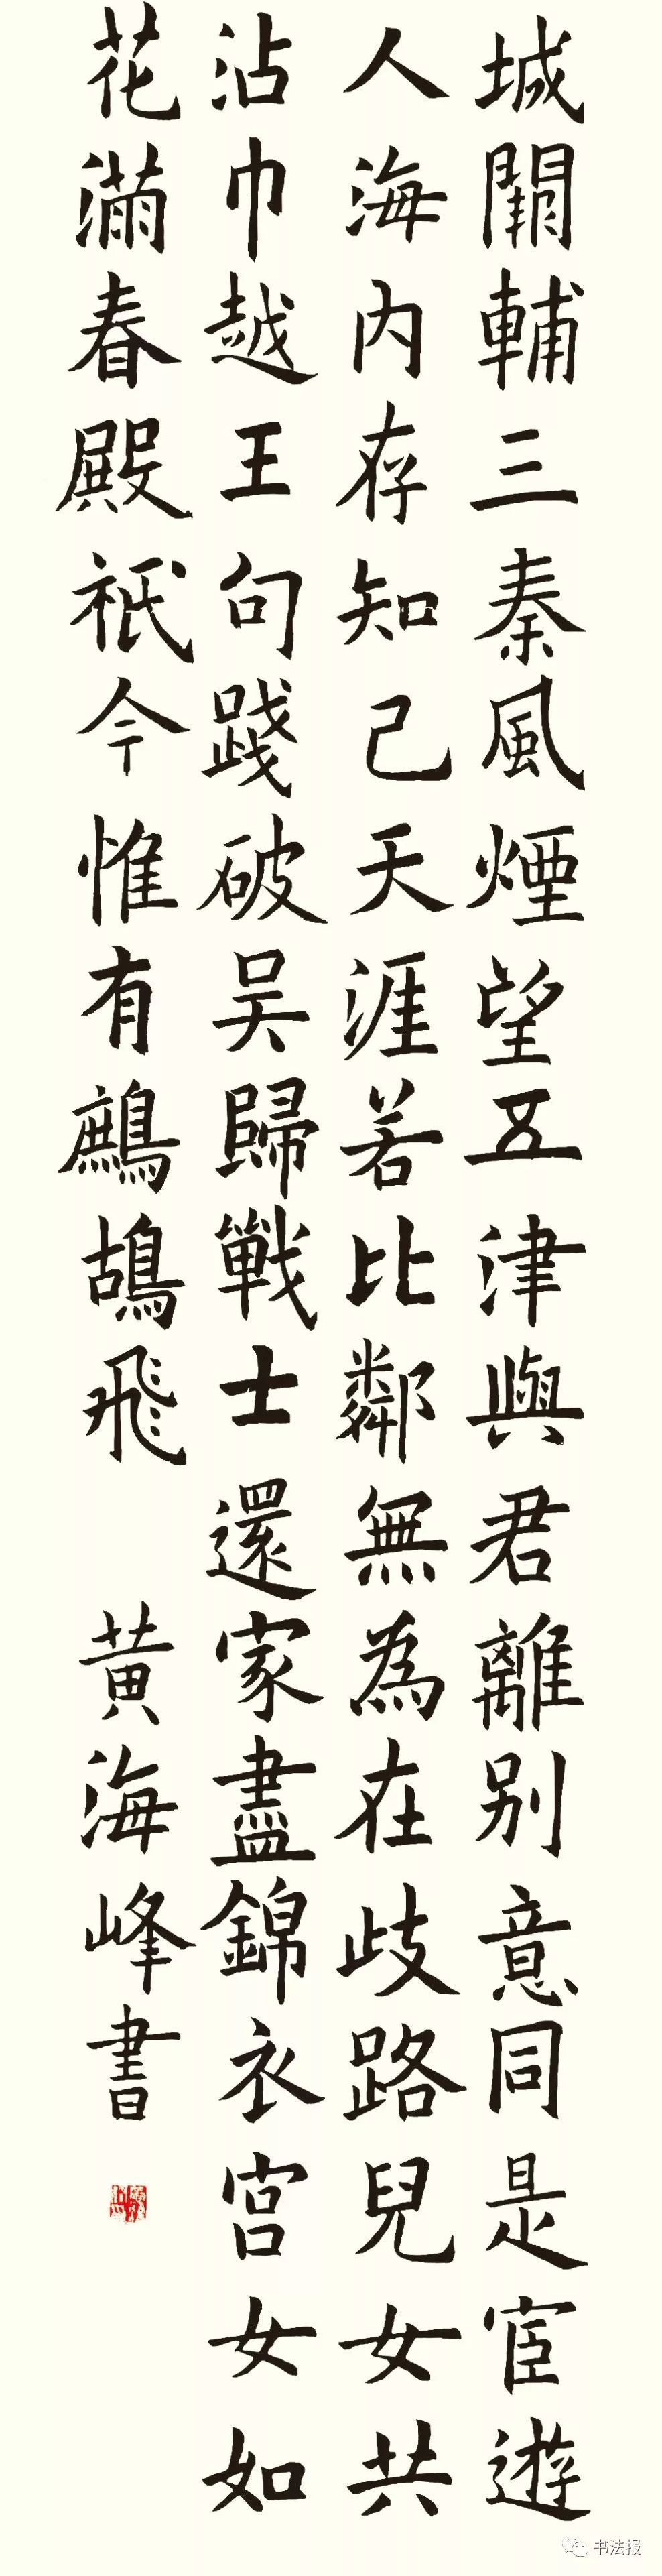 城闕輔三秦風煙望五津與君離别意同是宦遊
人海内存知己天涯若比鄰無為在歧路兒女共
沾巾越王句踐破吴歸戰士還家盡錦衣宫女如
花滿春殿祇今惟有鷓鴣飛 黄海峰書
书法报